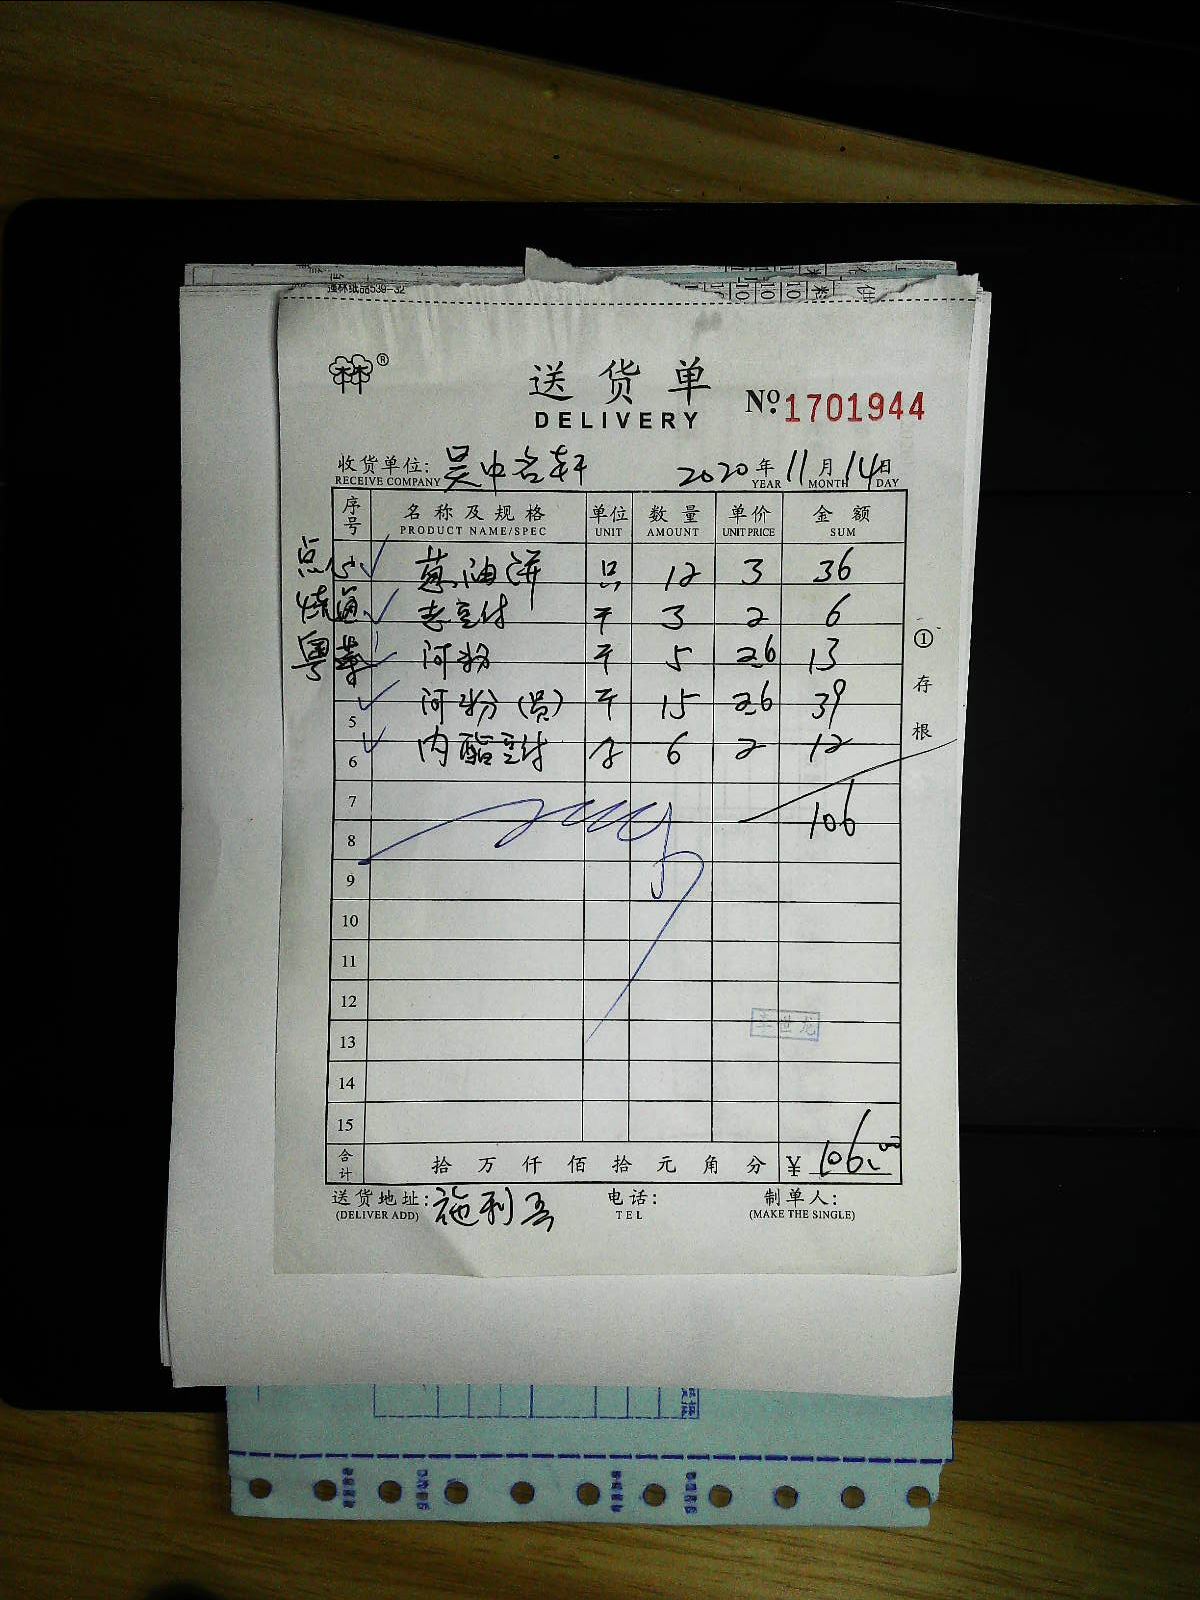 送货单
DELIVERY
№ 1701944
收货单位: 吴中名轩 2020年11月14日
RECEIVE COMPANY YEAR MONTH DAY
序号 名称及规格 单位 数量 单价 金额
PRODUCT NAME/SPEC UNIT AMOUNT UNIT PRICE SUM
点心 葱油饼 只 12 3 36
老豆付 斤 3 2 6
粤菜 河粉 斤 5 2.6 13
河粉(员) 斤 15 2.6 39
5
内酯豆付 6 2 12
6
7
106
8
9
10
11
12
13
14
15
合计 拾万仟佰拾元角分 ¥ 106.00
送货地址: 施利 电话: 制单人:
(DELIVER ADD) TEL (MAKE THE SINGLE)
①存根